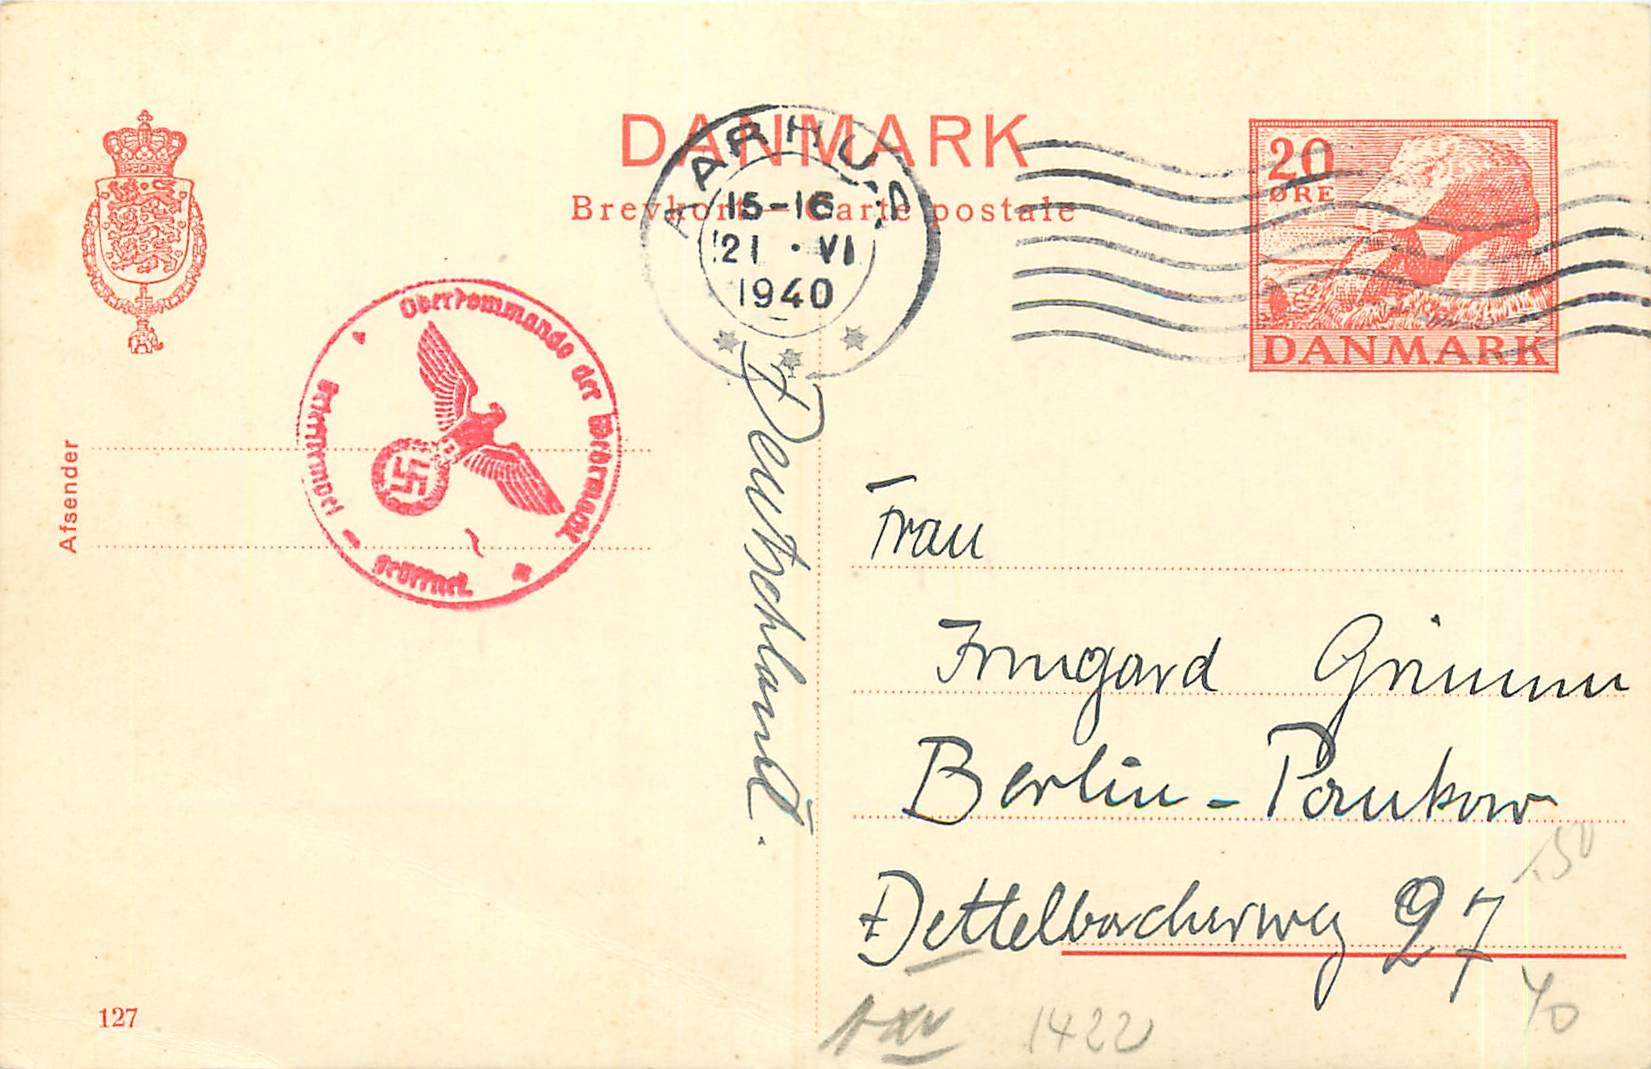 DANMARK
Brevkort – Carte postale
AARHUS
15-16
21 · VI
1940
20
ØRE
DANMARK
Oberkommando der Wehrmacht
Geöffnet
Afsender
Deutschland.
Frau
Irmgard Grimm
Berlin - Pankow
Dettelbacherweg 27
127
1422
40